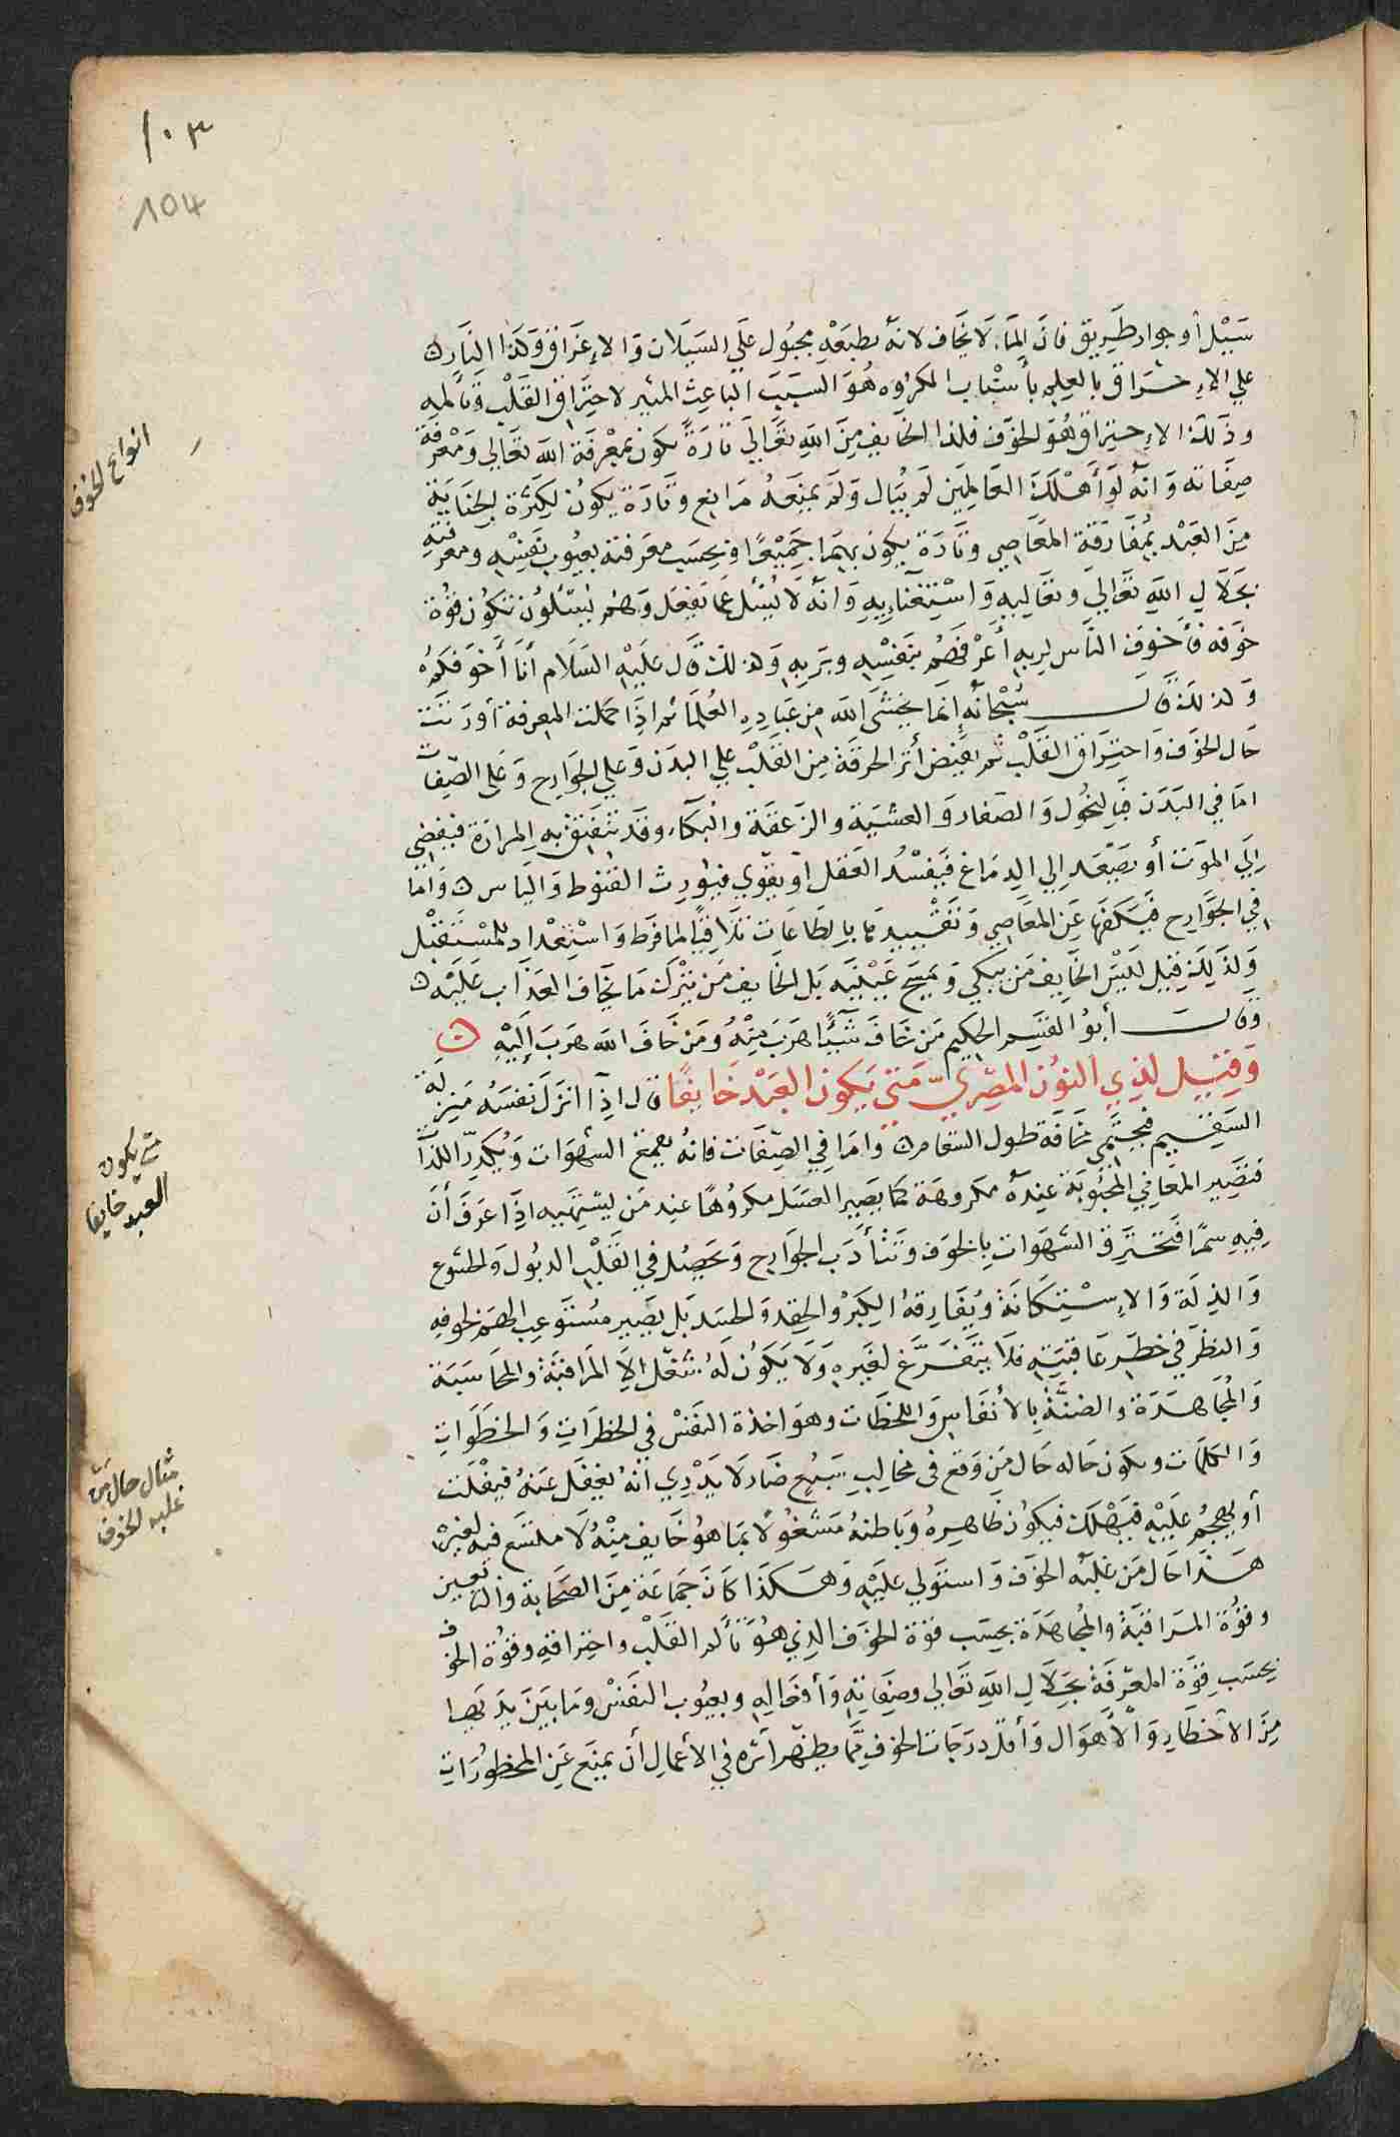 ١٠٣
104
سَيْل أو جوار حَريق فان المَاء يَخاف لانه بطبعه مجبُول علي السَيَلان والاغراق وكَذا النَّار
علي الإحتراق بالعلم بأسْباب المكرُوه هُوَ السَبَب الباعِث المثير لاحتِراق القَلْب وتَألمه
وذلك الاحتراق هُوَ الخوف فلذا الخايف مِنَ الله تعَالي تارَةً يكون بمعْرفَة الله تعَالي وَمعْرفة
صِفَاته وَانه لَوْ أهْلَك العَالمين لم يُبَال وَلم يمنعهُ مَانع وتَارَة يكونُ لكثرَة الجنَايَة
مِنَ العَبْد بمُقارفَة المعَاصِي وتَارَة يكون بهمَا جَميْعًا وبحسَب معَرفته بعيُوب نفْسِه ومعرفته
بجَلَال الله تعَالي وتعَاليه وَاسْتِغنَايه وَانه لَا يُسْئل عَمَّا يفعَل وَهُم يُسْئَلُون تكُون قوُة
خوَفه فأخوَف النَّاس لربه أعْرفهُم بنَفْسِه وبرَبه وَلذلك قال عَليْه السَلام أنَا أخوَفكم لله
وَلذلك قَال سُبْحانه إنمَا يخشَى الله مِن عِبَادِهِ العُلَمَاء ثم اذَا كملت المعرفة أورَثت
حَال الخوَف وَاحتِرَاق القَلْب ثم يفيض أثر الحرقَة مِن القَلْب علي البدَن وَعلي الجوَارح وَعَلى الصّفات
امَا في البَدَن فبالنحُول وَالصفار وَالغشيَة والزَعقَة والبكَاء وقد تنفَتق به المرارَة فيفضِي
إلَي المَوت أو يصَعَد إلي الدِمَاغ فَيفْسُد العَقل أو يقوي فيُورِث القنوط وَالياس ن وَامَّا
في الجوَارح فبكفهَا عَن المعَاصِي وَتَقْييدهَا بالطاعَات تلَافيًا لما فرَط وَاسْتِعْداد للمسْتَقبل
وَلذَلِكَ قِيل لَيْسَ الخَايف مَن يبكي وَيمسَح عَيْنَيه بَل الخايف مَن يترك مَا يخَاف العَذاب عَليْه ن
وقَال أبوُ القسَم الحكيم مَن خافَ شَيْئًا هرَبَ مِنْهُ وَمَن خَافَ الله هرَبَ إلَيْهِ ن
وَقِيل لذِي النوُن المِصْري مَتى يَكون العَبْد خَايفًا قال اذا انزَل نَفسَه مَنزلَة
السَقِيم فيحتَمى مخَافَة طول السَقام ن وَامَا في الصّفَات فانهُ يقمع الشهوَات وَيُكدِّر اللذا
فتَصِير المعَاصِي المحبُوبَة عِنده مكروهَة كمَا يصَير العسَل مكروُهًا عند مَن يشتَهيه اذَا عَرَفَ أن
فِيهِ سمًا فتحتَرق الشهَوَات بالخوَف وَتتأدَب الجوَارح وَيحصُل في القَلْب الدبُول وَالخشوع
وَالذِلَّة وَالإسْتِكَانَة وَيُفَارقهُ الكبْر وَالحِقد وَالحسَد بَل يَصير مُستَوعِب الهَمّ لخوفه
وَالنظَر في خطَر عَاقبَتِهِ فلَا يَتفَرَّغ لغَيره وَلَا يَكُون لَهُ شُغل الاَّ المُرَاقبَة والمحَاسَبَة
وَالمُجَاهدَة والضنَّة بالأنفَاس وَاللحظَات ومؤاخذة النَفس في الخطَرَاتِ وَالخطَوَات
وَالكلمَات ويكون حَاله حَال مَن وَقع في مخَالِيب سَبُعٍ ضَار لَا يَدْري أنهُ يغفَل عَنهُ فيفْلَت
أو يهجُم عَليْه فيَهْلك فيكوُن ظَاهِرهُ وَباطنهُ مَشْغوُلاً بمَا هوُ خَايف مِنْهُ لَا متّسَع فيه لغيرْ
هَذَا حَال مَن غلبَهُ الخوَف وَاستَوَلي عَليْه وَهكَذَا كَانَ جمَاعَة مِن الصحَابة والتابعين
وقوُة المرَاقبَة وَالمُجاهَدَة بحسَب قوة الخوَف الذِي هُوَ تألم القَلب واحتِراقه وَقوُة الخوف
بحسَب قوَّة المعرفَة بجَلَال الله تعَالي وصِفَاتِه وَأفعَاله وبعيُوب النَفسْ ومَا بَيْن يدَيهَا
مِنَ الأخطَار وَالأهوَال وَأقل درَجَات الخوَف مِمَّا يظهر أثره في الأعمال أن يمنَع عَن المحظُورَات
انواع الخوف
متى يكون
العبد خايفا
مثال حال من
غلبه الخوف